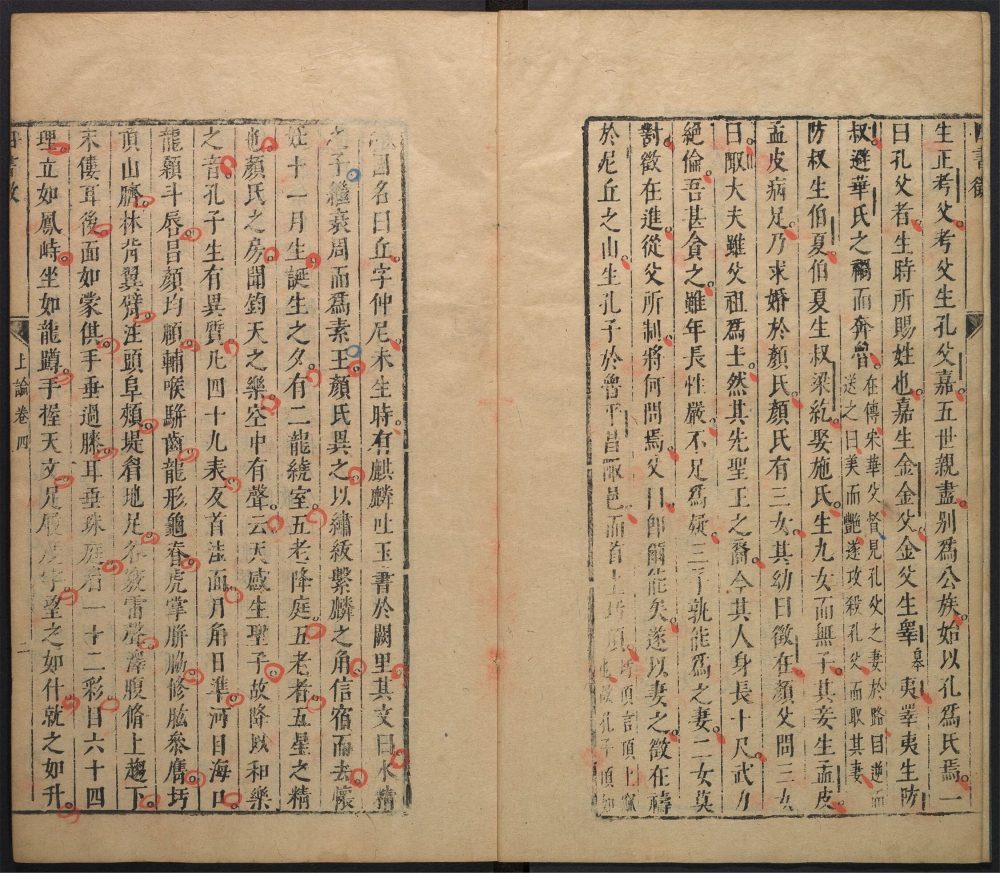 四書徵
生正考父考父生孔父嘉五世親盡別爲公族始以孔爲氏焉一
曰孔父者生時所賜姓也嘉生金金父金父生睾
臯
夷睾夷生防
叔避華氏之禍而奔魯
在傳宋華父督見孔父之妻於路目逆而
送之曰美而艷遂攻殺孔父而取其妻
防叔生伯夏伯夏生叔梁紇娶施氏生九女而無子其妾生孟皮
孟皮病足乃求婚於顏氏顏氏有三女其幼曰徵在顏父問三女
曰陬大夫雖父祖爲士然其先聖王之裔今其人身長十尺武力
絕倫吾甚貪之雖年長性嚴不足爲疑三子孰能爲之妻二女莫
對徵在進從父所制將何問焉父曰卽爾能矣遂以妻之徵在禱
於尼丘之山生孔子於魯平昌陬邑而首上圩頂
圩頂言頂上窳
也故孔子頂如
因名曰丘字仲尼未生時有麒麟吐玉書於闕里其文曰水精
之子繼衰周而爲素王顏氏異之以繡紱繫麟之角信宿而去懷
妊十一月生誕生之夕有二龍繞室五老降庭五老者五星之精
也顏氏之房聞鈞天之樂空中有聲云天感生聖子故降以和樂
之音孔子生有異質凡四十九表反首洼面月角日準河目海口
龍顙斗唇昌顏均頤輔喉駢齒龍形龜脊虎掌胼脇修肱參膺圩
頂山臍林背翼臂注頭阜頰堤眉地足谷竅雷聲澤腹脩上趨下
末僂耳後面如蒙倛手垂過膝耳垂珠庭眉一十二彩目六十四
理立如鳳峙坐如龍蹲手握天文足履度字望之如仆就之如升
四書徵
上論卷四
二